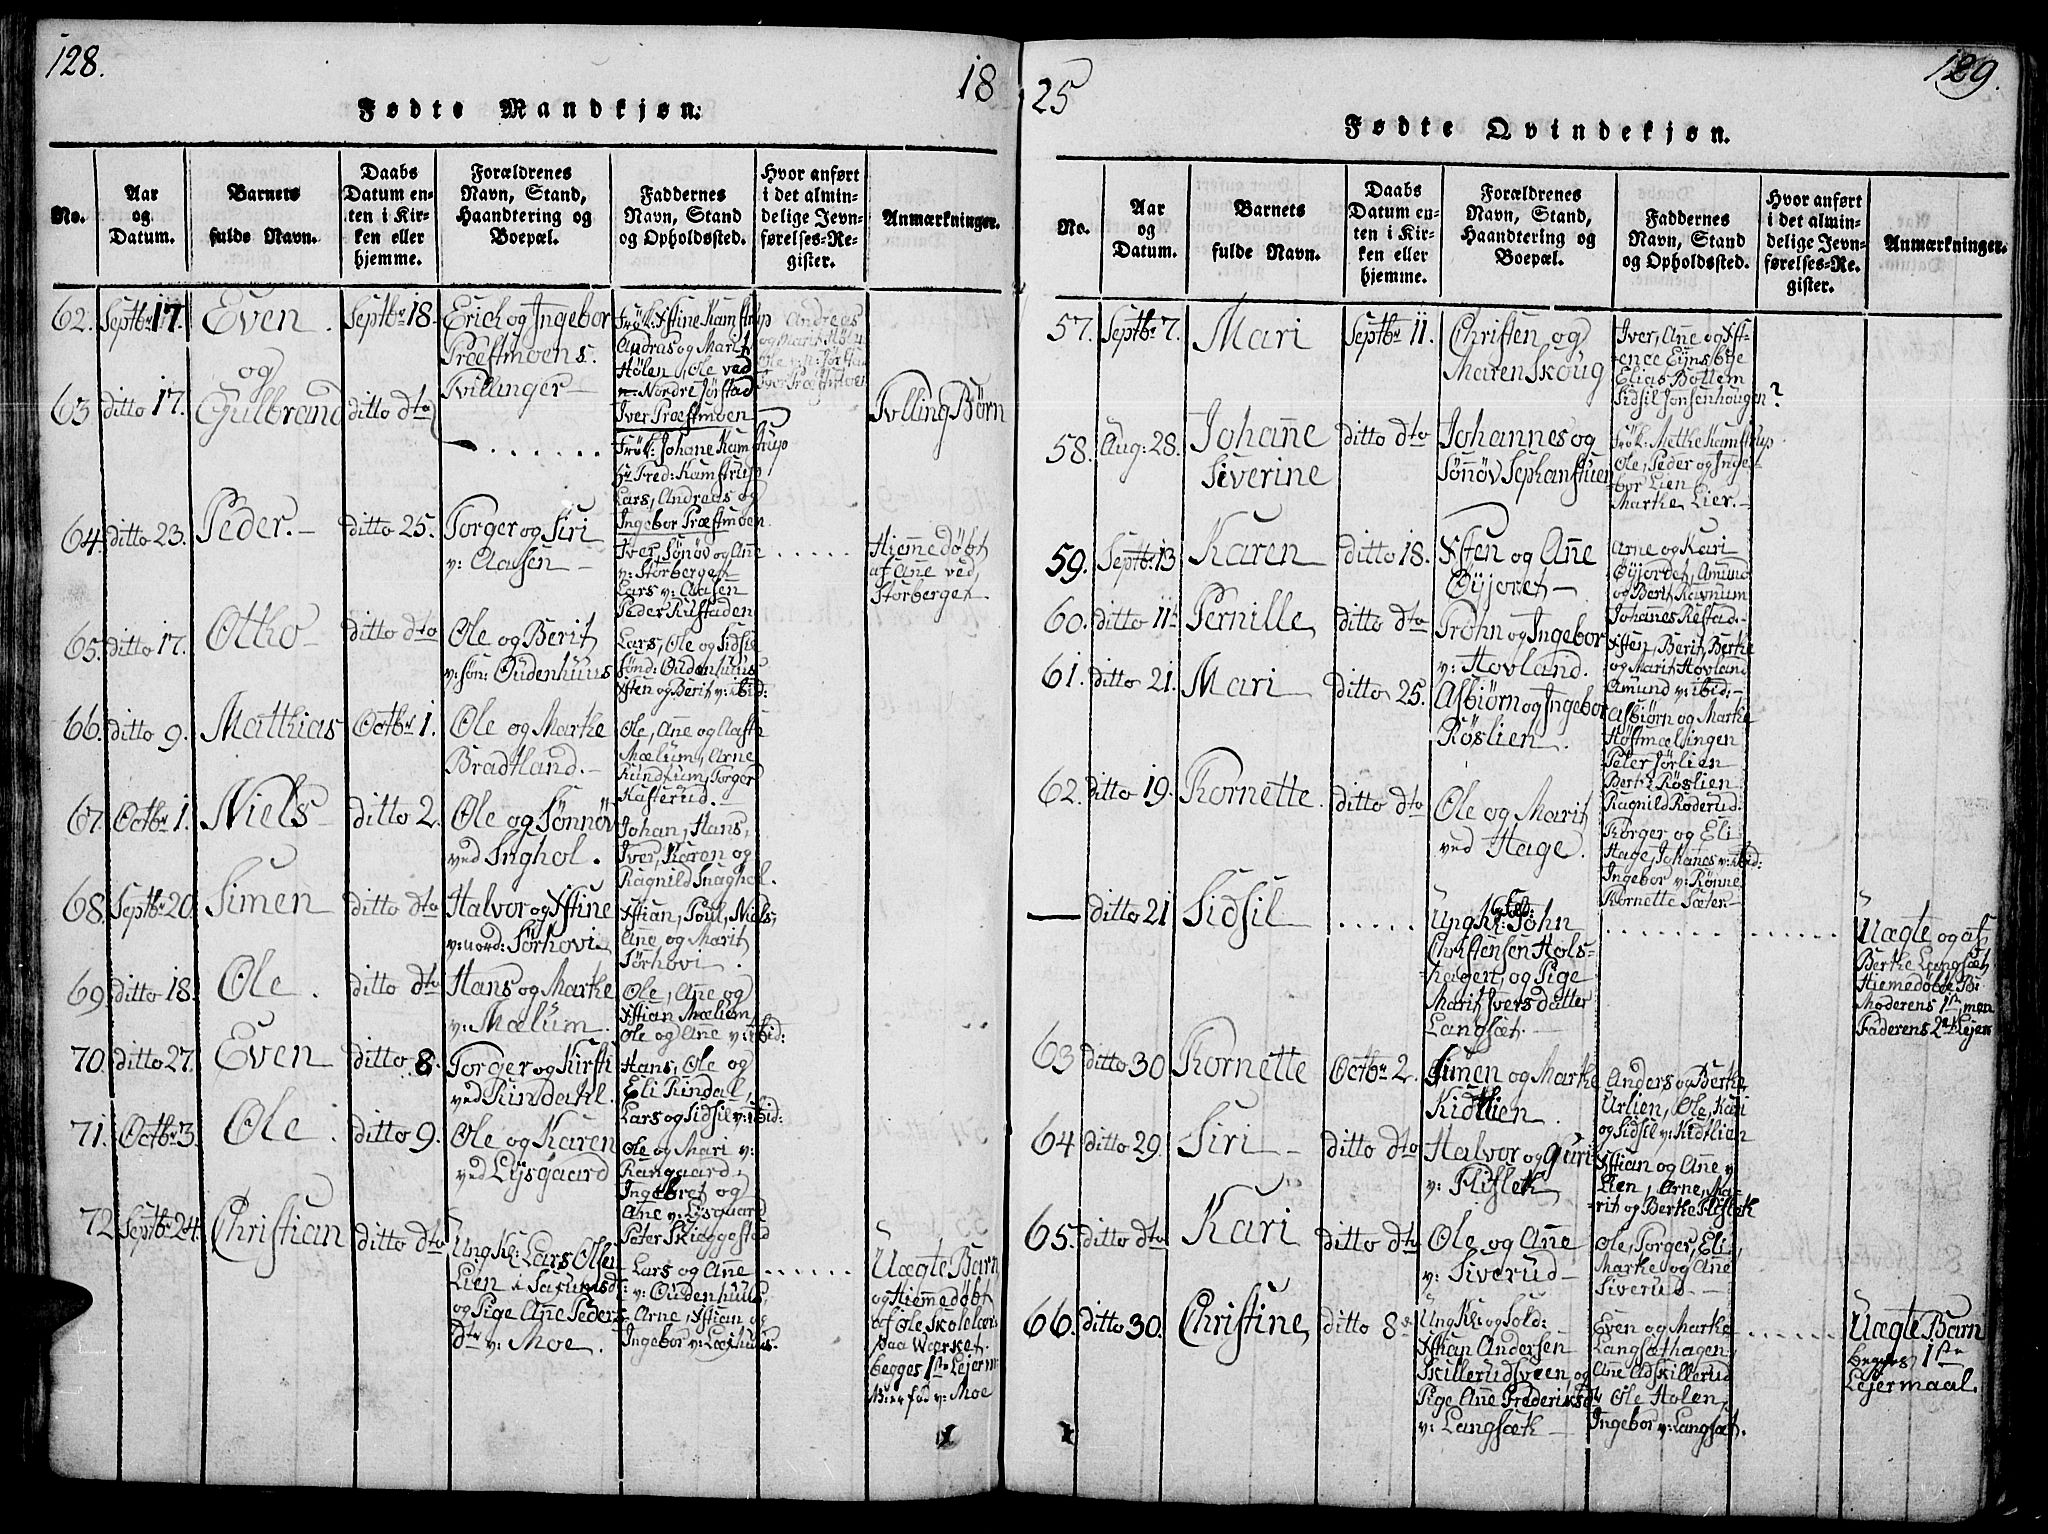 128.
18
Fødte Mandkjøn.
No.
Aar
og
Datum.
Barnets
fulde Navn.
Daabs
Datum en-
ten i Kir-
ken eller
hjemme.
Forældrenes
Navn, Stand,
Haandtering og
Boepæl.
Faddernes
Navn, Stand
og Opholdssted.
Hvor anført
i det almin-
delige Jevn-
førelses-Re-
gister.
Anmærkninger.
62. Septbr 17. Even. Septbr 18.
og
Erich og Ingebor
Præstmoens.
Tvillinger
Frøk: Xstine Kamstrup
Andras og Marit
Hølen, Ole ved
Nordre Jørstad
Iver Præstmoen
63 ditto 17. Gulbrand ditto dto
Frøk: Johane Kamstrup
Hr Fred: Kamstrup
Lars, Andreas og
Ingebor Præstmoen.
Tvlling Børn
64. ditto 23. Peder. ditto 25.
Torger og Siri
v: Aasen
Iver, Sønøv og Ane
v: Storberget
Lars v: Aasen
Peder Rustaden
Hiemmedøbt
af Ane ved
Storberget
65. ditto 17. Otho ditto dto
Ole og Berit
v: søn: Oudenhuus
Lars, Ole og Sidsil
sønd: Oudenhuus
Xsten og Berit v: ibid:
66. ditto 9. Matthias Octbr 1.
Ole og Marthe
Bradtland.
Ole, Ane og Aaste
Mælum, Arne
Rundtum, Torger
Hafterud.
67. Octbr 1. Niels ditto 2.
Ole og Sønnøv
ved Snghol.
Johan, Hans,
Iver, Karen og
Ragnild Snaghol.
68. Septbr 20. Simen ditto dto
Halvor og Xstine
v: nord: Sörhovi
Xstian, Poul, Niels,
Ane og Marit
Sörhovi.
69. ditto 18. Ole. ditto dto
Hans og Marthe
v: Mælum.
Ole, Ane og
Xstian Mælum,
Ole og Ane v: ibid:
70. ditto 27. Even ditto 8.
Torger og Kirsti
ved Rindahl.
Hans, Ole og
Eli Rindal,
Lars og Sidsil v: ibid:
71. Octbr 3. Ole. ditto 9.
Ole og Karen
ved Lysgaard
Ole og Mari v:
Rangaard,
Ingebret og
Ane v: Lysgaard
Peter Skieggestad
72 Septbr 24. Christian ditto dto
Ung K: Lars Olsen
Lien
og Pige Ane Peders
Dtr v: Moe.
Lars og Ane
v: Oudenhuus,
Arne, Xstian og
Ingebor v:
Uægte Barn
og Hiemmedøbt
af Ole Skolelær:
paa Wærket.
begges 1ste Lejerm:
v: Moe
25
129.
Fødte Qvindekjøn.
No.
Aar
og
Datum.
Barnets
fulde Navn.
Daabs
Datum en-
ten i Kir-
ken eller
hjemme.
Forældrenes
Navn, Stand,
Haandtering og
Boepæl.
Faddernes
Navn, Stand
og Opholdssted.
Hvor anført
i det almin-
delige Jevn-
førelses-Re-
gister.
Anmærkninger.
57. Septbr 7. Mari Septbr 11.
Christen og
Maren Skoug
Iver, Ane og Xst-
ence Eynsbye
Elias Bottem
Sidsil Jonsenhougen?
58. Aug: 28. Johanne
Siverine
ditto dto
Johannes og
Sønnøv Sephanstuen
Frøk: Mette Kamstrup
Ole, Peder og Inge-
bor Lien
Marthe Lier.
59. Septbr 13 Karen ditto 18.
Xsten og Ane
Øyjoret
Arne og Kari
Øyjordet, Amund
og Berit Ravnum
Johanes Restad.
60. ditto 11te Pernille ditto dto
Trohn og Ingebor
v: Hovland.
Xsten, Berit, Berthe
og Marit Hovland
Amund v: ibid:
61. ditto 21. Mari ditto 25.
Asbiørn og Ingebor
Røslien.
Asbiørn og Marthe
Høstmælingen
Peter Jørlien
Berthe Røslien
Ragnild Roderud.
62. ditto 19. Kornette ditto dto
Ole og Marit
ved Hage.
Torger og Eli
Hage, Johanes v: ibid:
Ingebor v: Rønne
Kornette Sæter.
— ditto 21 Sidsil
Ung K: og Sold: John
Christensen Hols-
hagert, og Pige
Marit Ivers datter
Langsæt.
Uægte og af
Berthe Langsæt
Hiemedøbt
Moderens 1ste, men
Faderens 2det Lejerm
63 ditto 30 Kornette Octbr 2.
Simen og Marthe
Kidtlien.
Anders og Berthe
Urlien, Ole, Kari
og Sidsil v: Kidtlien
64 ditto 29. Siri ditto dto
Halvor og Guri
v: Flisleth
Xstian og Ane v
Lien, Arne, Ma-
rit og Berthe Flisleth
65. ditto dto Kari ditto dto
Ole og Ane
v: Siverud
Ole, Torger, Eli,
Marthe og Ane
Siverud
66. ditto 30. Christine, ditto 8de
Ung K: og Sold:
Xstian Andersen
Skillerudsveen og
Pige Ane Frederiksd
v: Langsæth
Even og Marthe
Langsæthagen,
Ane Skillerud
Ole Holen,
Ingebor v: Langsæt.
Uægte Barn
begges 1ste
Lejermaal.